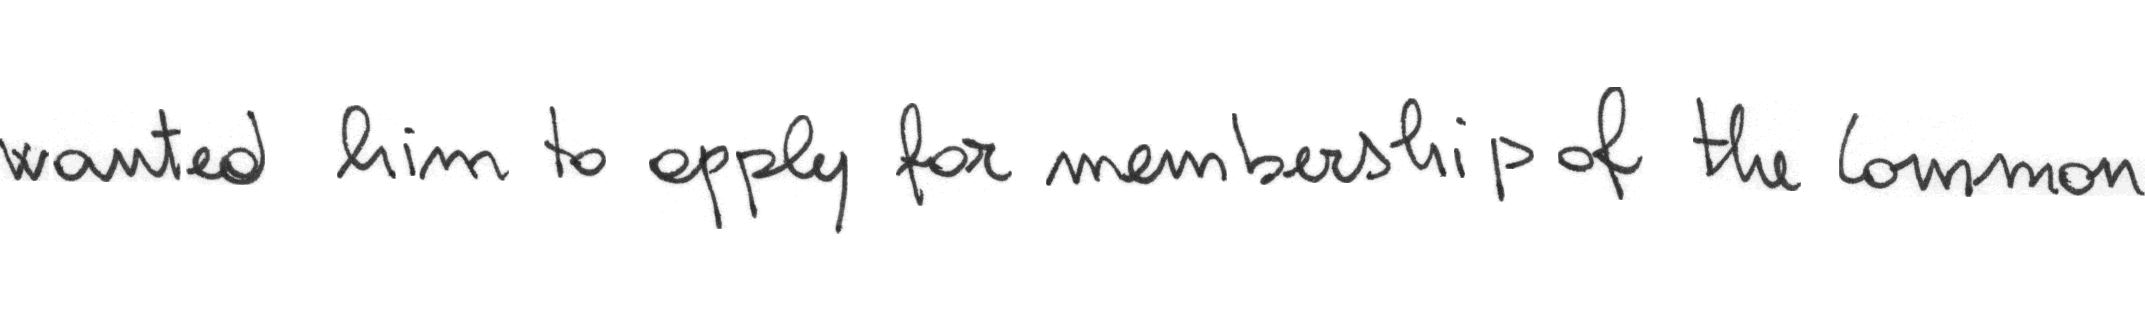 wanted him to apply for membership of the Common